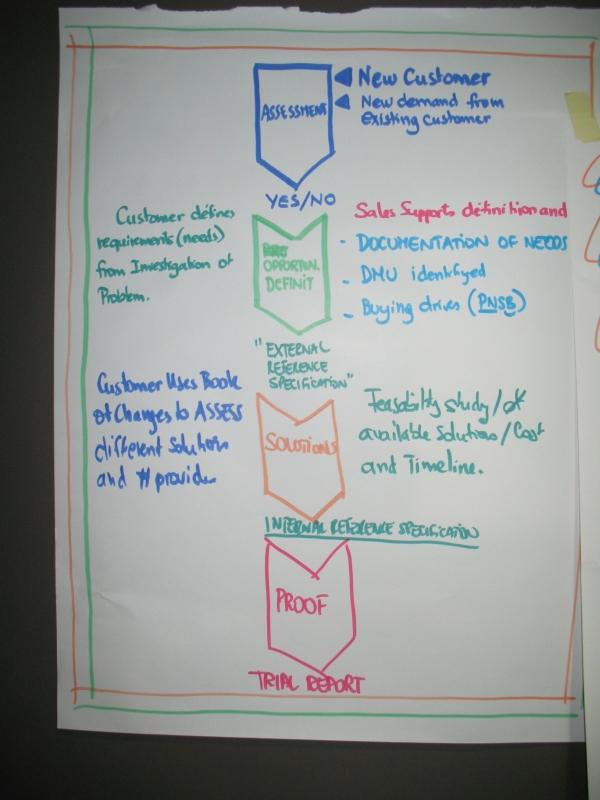 ASSESSMENT
New Customer
New demand from
Existing Customer
YES/NO
Customer defines
requirements (needs)
from Investigation of
Problem.
OPPORTUN.
DEFINIT
Sales Supports definition and
- DOCUMENTATION OF NEEDS
- DMU identifyed
- Buying drives (PNSB)
"EXTERNAL
REFERENCE
SPECIFICATION"
Customer Uses Book
of Changes to ASSESS
different Solutions
and provide
SOLUTIONS
Feasability study/of
available Solutions/Cost
and Timeline.
INTERNAL REFERENCE SPECIFICATION
PROOF
TRIAL REPORT